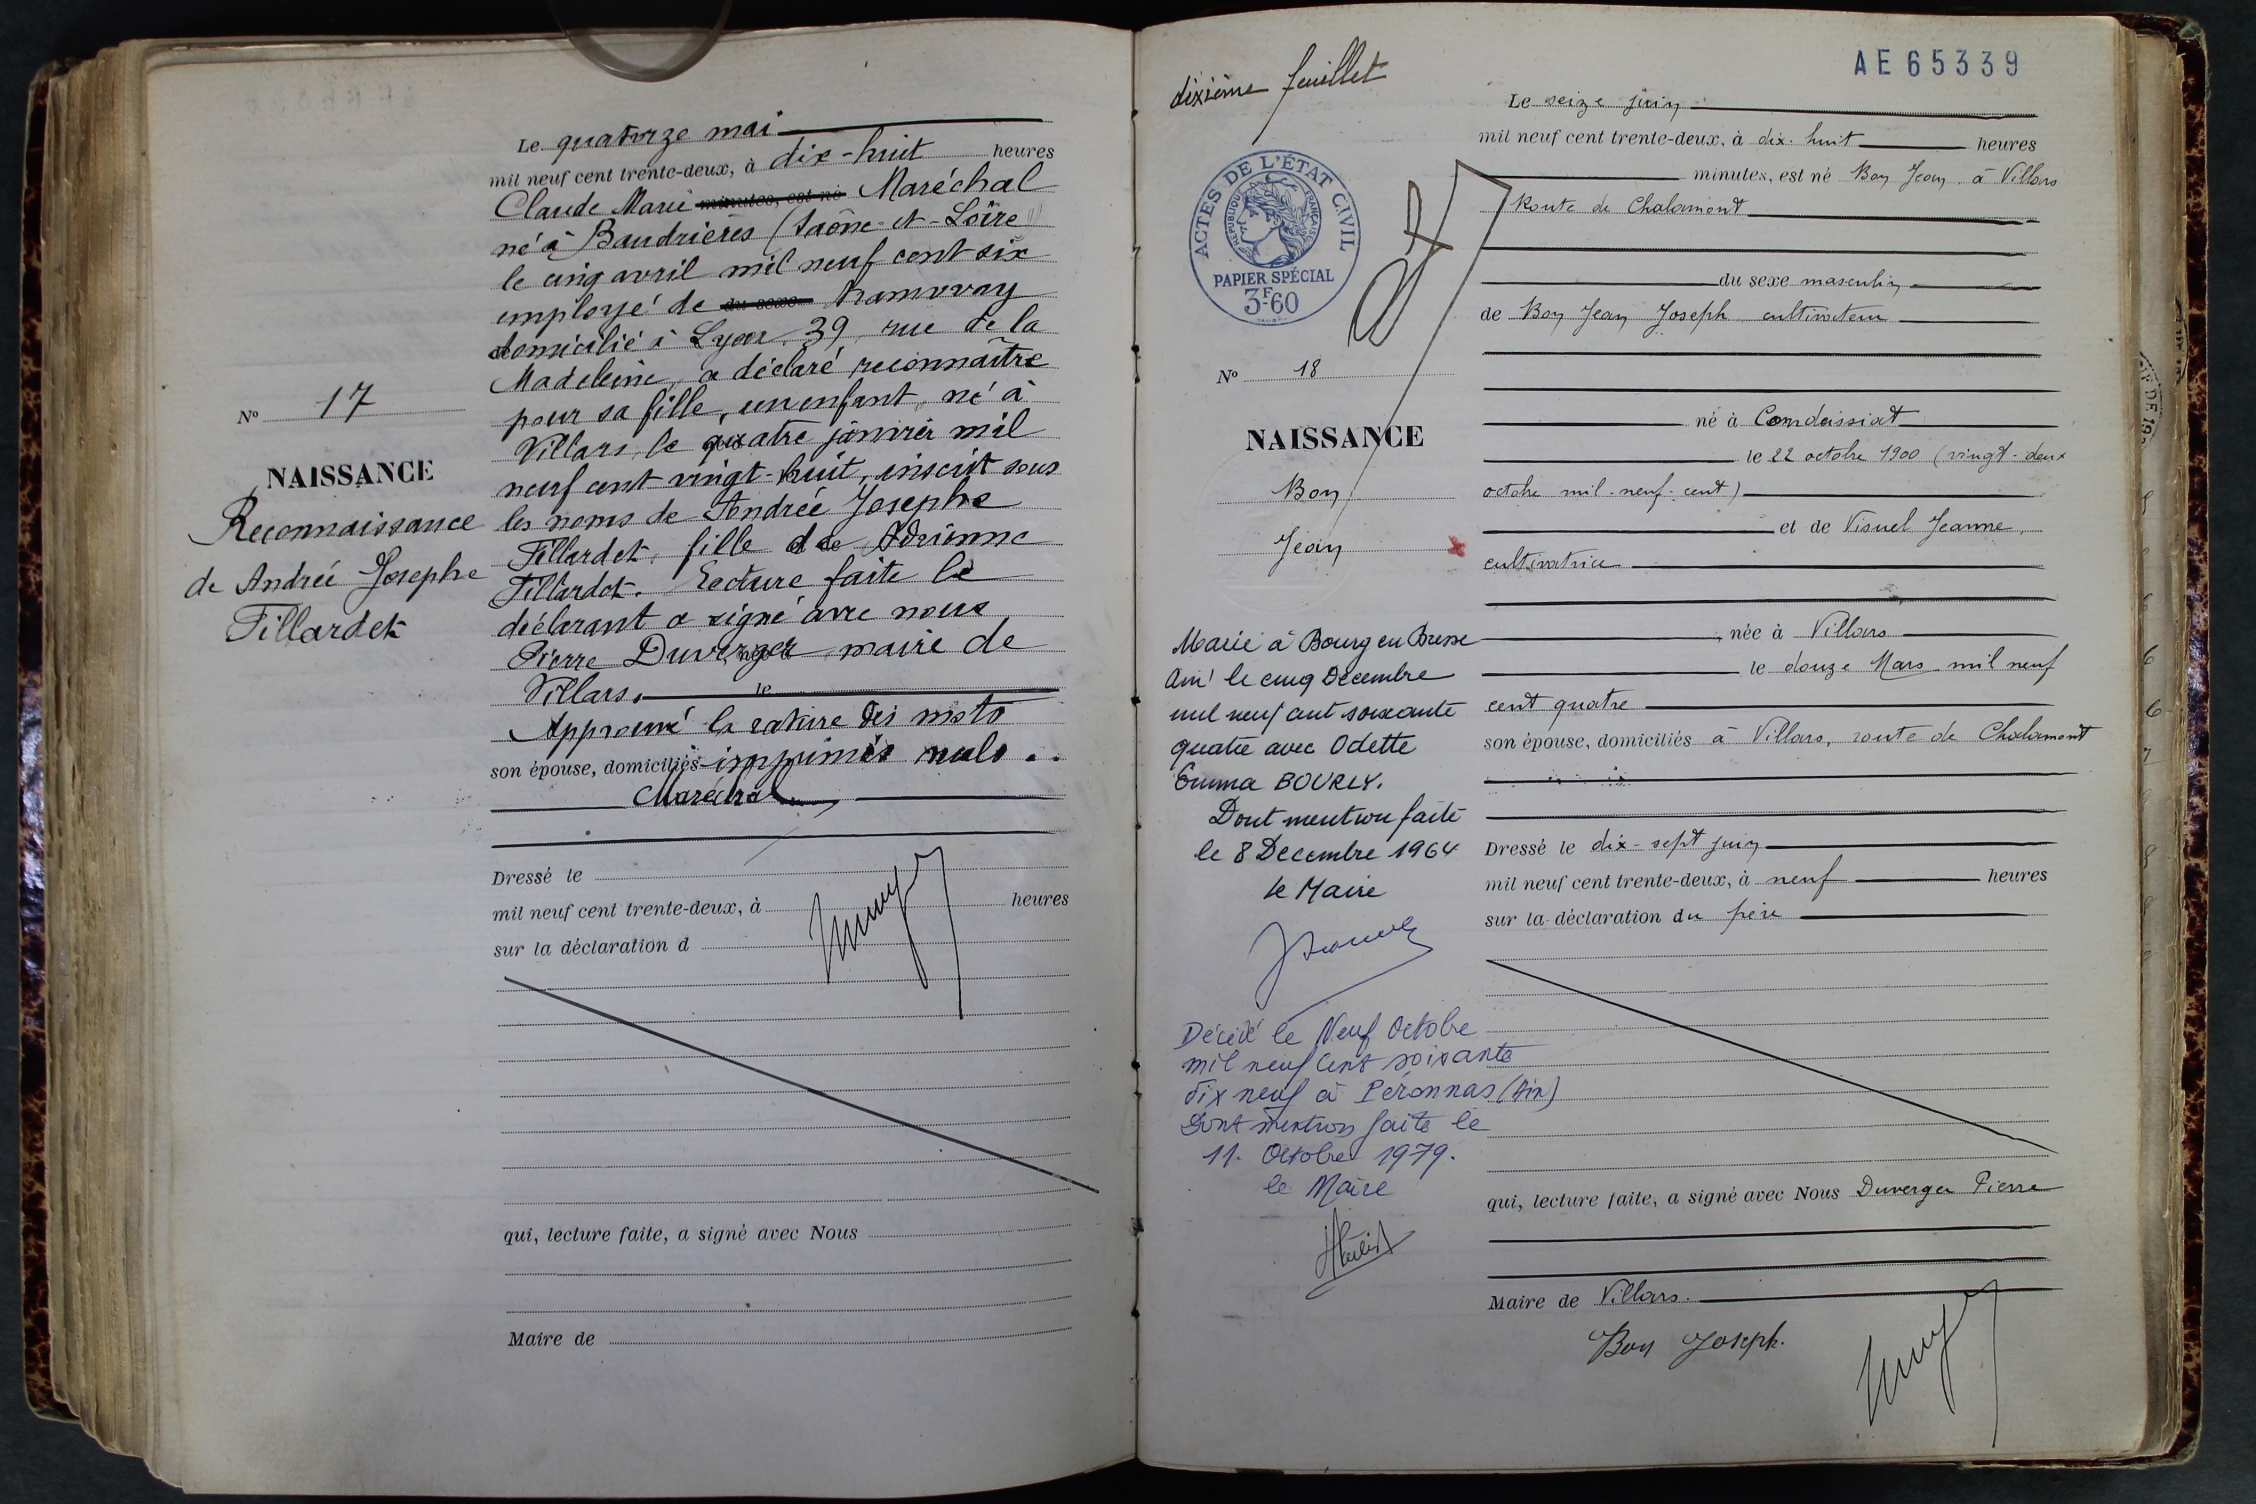 Le quatorze mai
mil neuf cent trente-deux, à dix-huit heures
Claude Marie minutes, est né Maréchal
né à Baudrières (Saône-et-Loire
le cinq avril mil neuf cent six
employé de du sexe tramway
domicilié à Lyon, 39, rue de la
Madeleine, a déclaré reconnaître
pour sa fille, un enfant, né à
Villars, le quatre janvier mil
neuf cent vingt-huit, inscrit sous
les noms de Andrée Josephe
Tillardet, fille de Adrienne
Tillardet. Lecture faite le
déclarant a signé avec nous
Pierre Duverger maire de
Villars. le
Approuvé la rature des mots
son épouse, domiciliés imprimés nuls..
Maréchal
Dressé le
mil neuf cent trente-deux, à heures
sur la déclaration d
qui, lecture faite, a signé avec Nous
Maire de
No 17
NAISSANCE
Reconnaissance
de Andrée Josephe
Tillardet
dixième feuillet
AE65339
ACTES DE L'ÉTAT CIVIL
RÉPUBLIQUE FRANÇAISE
PAPIER SPÉCIAL
3F-60
No 18
NAISSANCE
Bon
Jean
Marié à Bourg en Bresse
Ain le cinq Décembre
mil neuf cent soixante
quatre avec Odette
Emma BOURLY.
Dont mention faite
le 8 Décembre 1964
le Maire
Décédé le Neuf Octobre
mil neuf cent soixante
dix neuf à Péronnas (Ain)
Dont mention faite le
11. Octobre 1979.
le Maire
Le seize juin
mil neuf cent trente-deux, à dix-huit heures
minutes, est né Bon Jean à Villars
Route de Chalamont
du sexe masculin
de Bon Jean Joseph cultivateur
né à Condeissiat
le 22 octobre 1900 (vingt-deux
octobre mil-neuf-cent)
et de Visuel Jeanne,
cultivatrice
, née à Villars
le douze Mars mil neuf
cent quatre
son épouse, domiciliés à Villars, route de Chalamont
Dressé le dix-sept juin
mil neuf cent trente-deux, à neuf heures
sur la déclaration du père
qui, lecture faite, a signé avec Nous Duverger Pierre
Maire de Villars.
Bon Joseph.